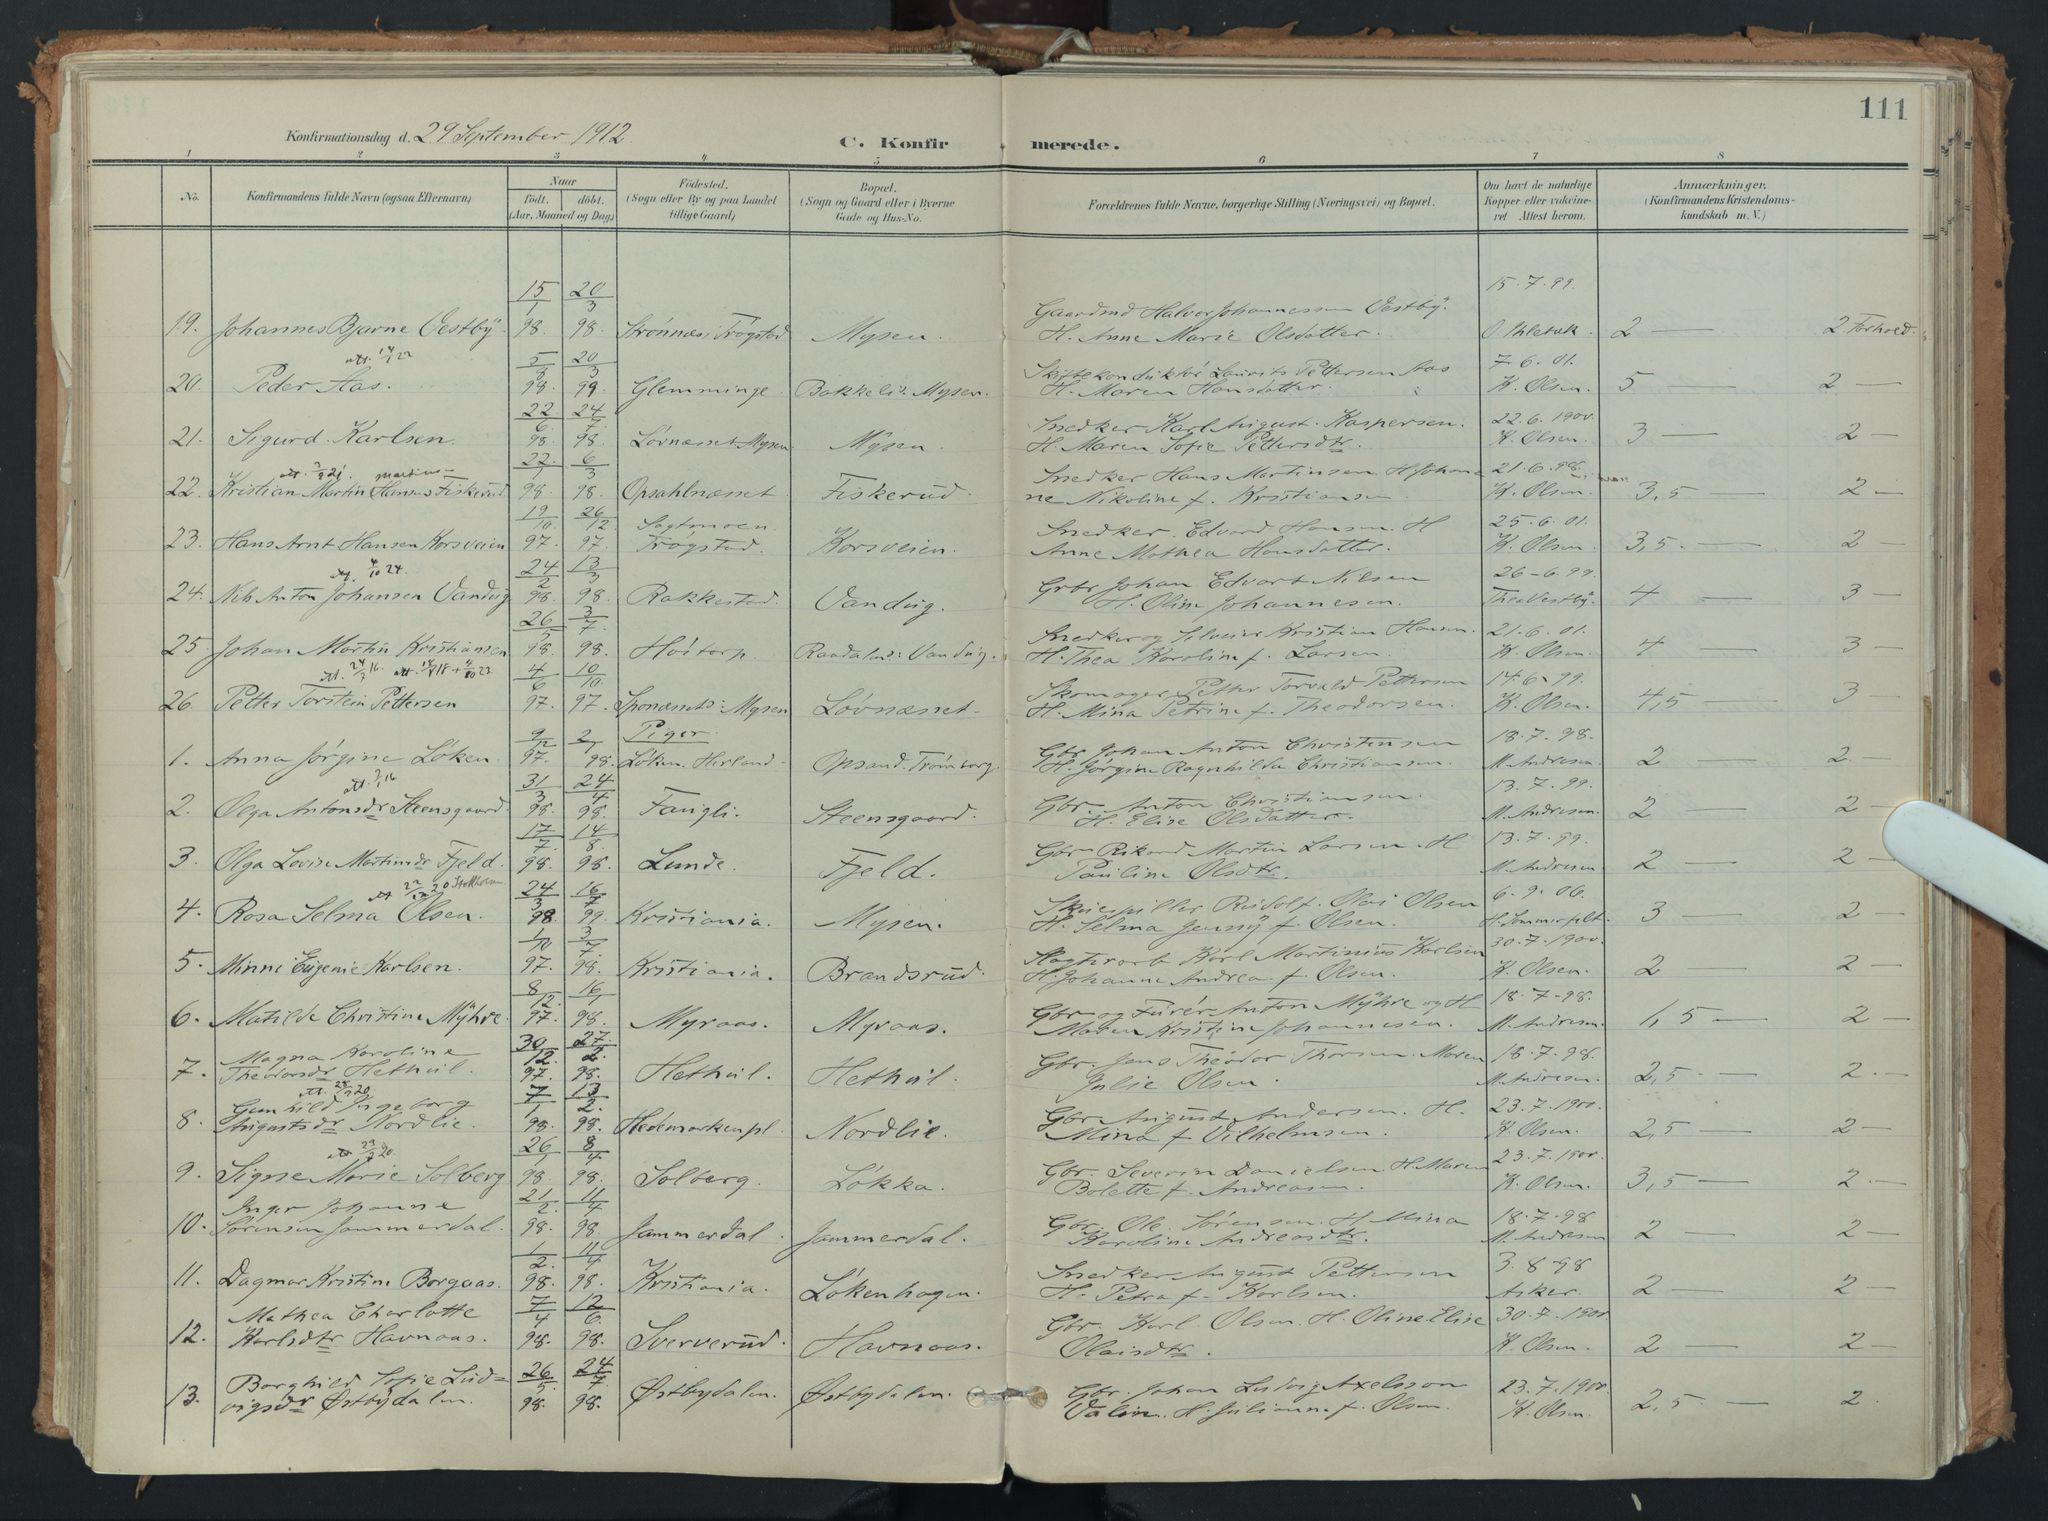 111
Konfirmationsdag d. 29 September 1912.
C. Konfir merede.
1 2 3 4 5 6 7 8
No. Konfirmandens fulde Navn (ogsaa Efternavn) Naar Født. døbt. (Aar, Maaned og Dag) Fødested. (Sogn eller By og paa Landet tillige Gaard) Bopæl. (Sogn og Gaard eller i Byerne Gade og Hus-No. Forældrenes fulde Navne, borgerlige Stilling (Næringsvei) og Bopæl. Om havt de naturlige Kopper eller vakcineret Attest herom. Anmærkninger. (Konfirmandens Kristendomskundskab m. V.)
19. Johannes Bjarne Vestbÿ. 15/1 98. 20/3 98. Strønnæs, Trøgstad Mysen. Gaardmd Halvor Johannessen Vestbÿ. H. Anne Marie Olsdatter. 15.7.99. 2 — 2. Forhold.
att. 14/1 22
20. Peder Aas. 5/8 98 20/3 99 Glemminge. Bakkeli: Mysen. Skiftekonduktør Laurits Pettersen Aas H. Maren Hansdatter. 7-6.01. K. Olsen. 5 — 2 —
21. Sigurd Karlsen. 22/6 98. 24/7 98. Løvnæsset Mysen Mÿsen. Snedker Karl August Kaspersen. H. Maren Sofie Pettersdtr. 22.6.1900. K. Olsen. 3 — 2 —
22. Kristian Martin Hansen Fiskerud 22/1 98. 6/3 98. Opsahlnæsset Fiskerud. Snedker Hans Martinsen H. Johanne Nikoline f. Kristiansen. 21.6.98. K. Olsen. 3,5 — 2 —
23. Hans Arnt Hansen Korsveien 19/10 97. 26/12. 97. Sagtmoen Trøgstad. Korsveien. Snedker Edvard Hansen. H Anne Mathea Hansdatter. 25.6.01. K. Olsen. 3,5. — 2 —
att. 4/10 24.
24. Nils Anton Johansen Vandug 24/2 98. 13/3 98. Rakkestad. Vandug. Grbr Johan Edvart Nilsen H. Oline Johannesen. 26-6.99. Thea Vestbÿ. 4 — 3 —
25. Johan Martin Kristiansen 26/5 98. 3/7 98. Høitorp. Raadalen: Vandug. Snedker og Kristian Hansen. H. Thea Karoline f. Larsen. 21.6.01. K. Olsen. 4 — 3 —
26. Petter Torstein Pettersen 4/6 97. 10/10. 97. Sponæsset: Mysen Løvnæsset. Skomager Petter Torvald Pettersen H. Mina Petrine f. Theodorsen. 14.6.99. K. Olsen. 4,5 — 3 —
Piger.
1. Anna Jørgine Løken. 9/12 97. 2/1 98. Løken. Herland Opsand. Trømborg. Gbr. Johan Anton Christensen H. Jørgine Ragnhilda Christiansen. 18.7.98. M. Andresen. 2 — 2 —
2. Olga Antonsdr Steensgaard. 31/3 98. 24/4 98. Fangli. Steensgaard. Gbr. Anton Christiansen. H. Elise Olsdatter. 13.7.99. M. Andresen. 2 — 2 —
3. Olga Lovise Martinsdr Fjeld. 17/7 98. 14/8. 98. Lunde. Fjeld. Gbr Rikard Martin Larsen. H Pauline Olsdtr. 13.7.99. M. Andresen. 2 — 2 —
20 Stokholm
4. Rosa Selma Olsen. 24/3 98. 16/7 99. Kristiania. Mysen. Skuespiller Rudolf Olai Olsen H. Selma Jenny f. Olsen. 6.9.06. H. Sommerfelt. 3 — 2 —
5. Minne Eugenie Karlsen. 1/10 97. 3/7. 98. Kristiania. Brandsrud. Karl Martinius Karlsen H. Johanne Andrea f. Olsen. 30.7.1900. K. Olsen. 2 — 2 —
6. Matilde Christine Mÿhre. 8/12. 97. 16/1 98. Myraas. Myraas. Gbr og Anton Mÿhre og H Maren Kristine Johannesen. 18.7.98. M. Andresen. 1,5 — 2 —
7. Magna Karoline Theodorsdr Hethul. 30/12. 97. 27/2. 98. Hethul. Hethul. Gbr. Jens Theodor Thorsen. Maren Julie Olsen. 18.7.98. M. Andresen. 2,5 — 2 —
8. Gunhild Ingeborg Augustsdr Nordlie. 7/1 98. 13/2. 98. Hedemarken pl. Nordlie. Gbr August Andersen. H. Mina f. Vilhelmsen. 23.7.1900. K. Olsen. 2,5 — 2 —
9. Signe Marie Solberg 26/1 98. 8/4 98. Solberg. Løkka. Gbr. Severin Danielsen H. Maren Bolette f. Andreasen. 23.7.1900. K. Olsen. 3,5 — 2 —
10. Inger Johanne Sørensen Jammerdal. 21/2. 98. 11/4 98. Jammerdal. Jammerdal. Gbr. Ole Sørensen. H Mina Karoline Andreasdtr. 18.7.98 M. Andresen 2 — 2 —
11. Dagmar Kristine Borgaas. 1/2. 98. 11/4 98. Kristiania. Løkenhagen. Snedker August Pettersen H. Petra f. Karlsen. 3.8-98 Asker. 2 — 2 —
12. Mathea Charlotte Karlsdtr Havnaas. 7/4 98. 12/6. 98. Sververud. Havnaas. Gbr. Karl Olsen. H. Oline Elise Olaisdtr. 30.7.1900 K. Olsen. 2 — 2 —
13. Borghild Sofie Ludvigsdr Østbydalen. 26/5. 98. 24/7. 98. Østbydalen. Østbydalen. Gbr. Johan Ludvig Axelsson Valin. H. Julianne f. Olsen. 23.7.1900. K. Olsen. 2,5 — 2